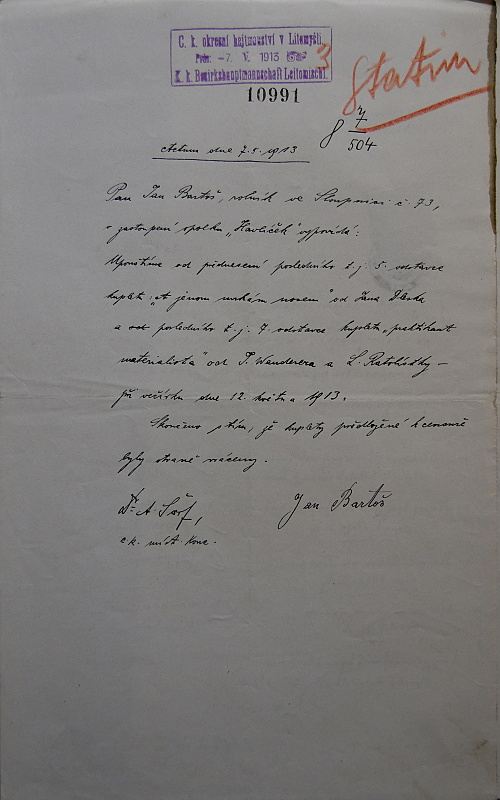 C. k. okresní hejtmanství v Litomyšli
Präs: -7. V. 1913
K. k. Bezirkshauptmannschaft Leitomischl.
3
Statim
10991
8 7/504
Actum dne 7.5.1913
Pan Jan Bartoš, rolník ve Sloupnici č. 73,
v zastoupení spolku „Havlíček" vypovídá:
Upouštíme od přednesení posledního t.j. 5. odstavce
kupletu: „A jenom mrkám nosem" od Jana
a od posledního t.j. 7. odstavce kupletu „praktikant
materialista" od P. Wanderera a L. Ratolístky –
při věnečku dne 12. května 1913.
Skončeno s tím, že kuplety předložené k censuře
byly straně vráceny.
Dr A Šorf, Jan Bartoš
c.k. míst. konc.